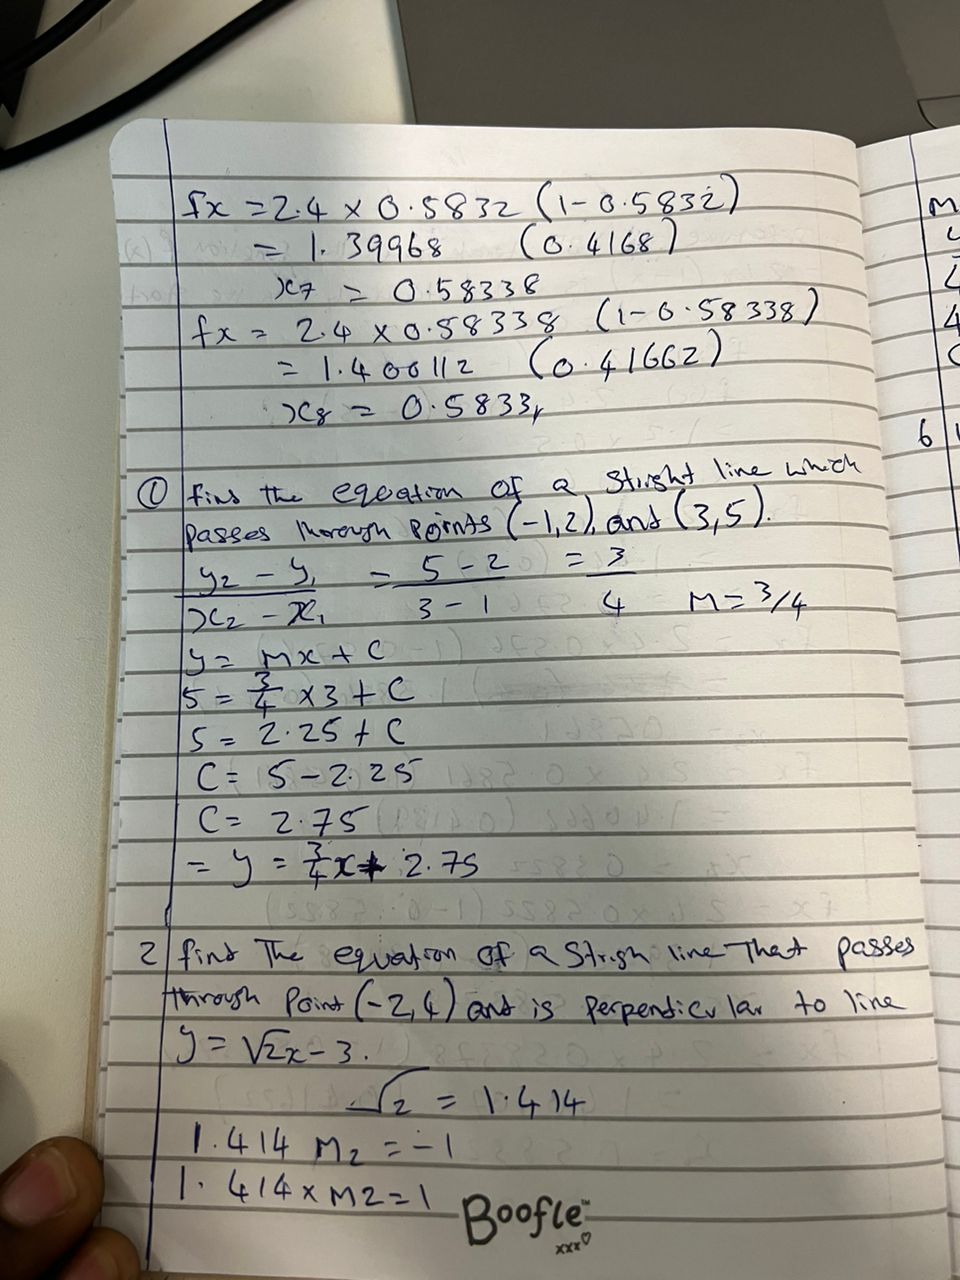 fx = 2.4 × 0.5832 (1-0.5832)
= 1.39968 (0.4168)
x7 = 0.58338
fx = 2.4 × 0.58338 (1-0.58338)
= 1.400112 (0.41662)
x8 = 0.5833,
① find the equation of a Stright line which
passes thorough points (-1,2), and (3,5).
y2 - y1 / x2 - x1 = 5 - 2 / 3 - 1 = 3 / 4 M = 3/4
y = mx + C
5 = 3/4 × 3 + C
5 = 2.25 + C
C = 5 - 2.25
C = 2.75
= y = 3/4 x + 2.75
2 find The equation of a Strigh line That passes
through Point (-2,4) and is perpendicular to line
y = √2x - 3.
√2 = 1.414
1.414 M2 = -1
1.414 × M2 = 1
Boofle™
xxx♡
M
4
6